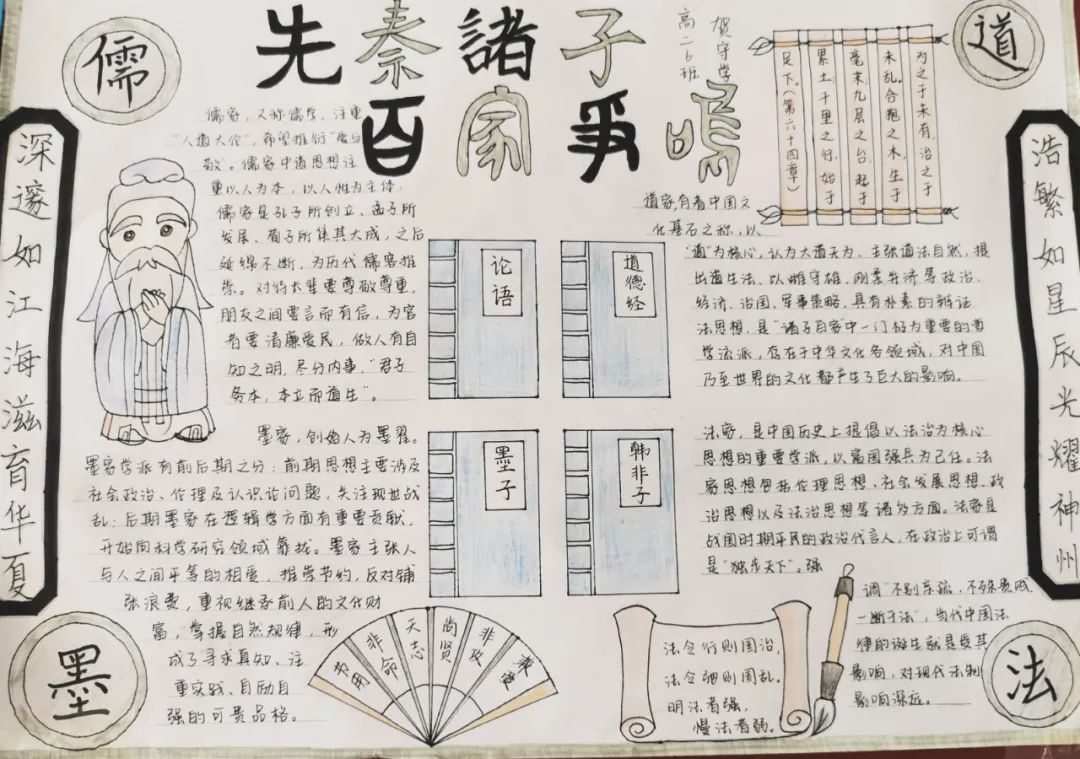 先秦諸子
百家爭鳴
高二6班
贺守学
儒
道
墨
法
深邃如江海滋育华夏
浩繁如星辰光耀神州
儒家，又称儒学，注重
“人道大伦”，希望推行“爱与
敬”。儒家中道思想注
重以人为本，以人性为主体，
儒家是孔子所创立、孟子所
发展、荀子所集其大成，之后
延绵不断，为历代儒客推
崇。对待长辈要尊敬尊重，
朋友之间要言而有信，为官
者要清廉爱民，做人有自
知之明，尽分内事，“君子
务本，本立而道生”。
论语
道德经
墨子
韩非子
为之于未有，治之于
未乱。合抱之木，生于
毫末；九层之台，起于
累土；千里之行，始于
足下。（第六十四章）
道家，有着中国文
化基石之称，以
“道”为核心，认为大道无为、主张道法自然，提
出道生法、以雌守雄、刚柔并济等政治、
经济、治国、军事策略，具有朴素的辩证
法思想，是“诸子百家”中一门极为重要的哲
学流派，存在于中华文化各领域，对中国
乃至世界的文化都产生了巨大的影响。
墨家，创始人为墨翟。
墨家学派有前后期之分：前期思想主要涉及
社会政治、伦理及认识论问题，关注现世战
乱；后期墨家在逻辑学方面有重要贡献，
开始向科学研究领域靠拢。墨家主张人
与人之间平等的相爱，推崇节约，反对铺
张浪费，重视继承前人的文化财
富，掌握自然规律，形
成了寻求真知、注
重实践、自励自
强的可贵品格。
节用
非命
天志
尚贤
非攻
兼爱
法家，是中国历史上提倡以法治为核心
思想的重要学派，以富国强兵为己任。法
家思想包括伦理思想、社会发展思想、政
治思想以及法治思想等诸多方面。法家是
战国时期平民的政治代言人，在政治上可谓
是“独步天下”。强
调“不别亲疏，不殊贵贱
一断于法”，当代中国法
律的诞生就是受其
影响，对现代法制
影响深远。
法令行则国治，
法令弛则国乱。
明法者强，
慢法者弱。